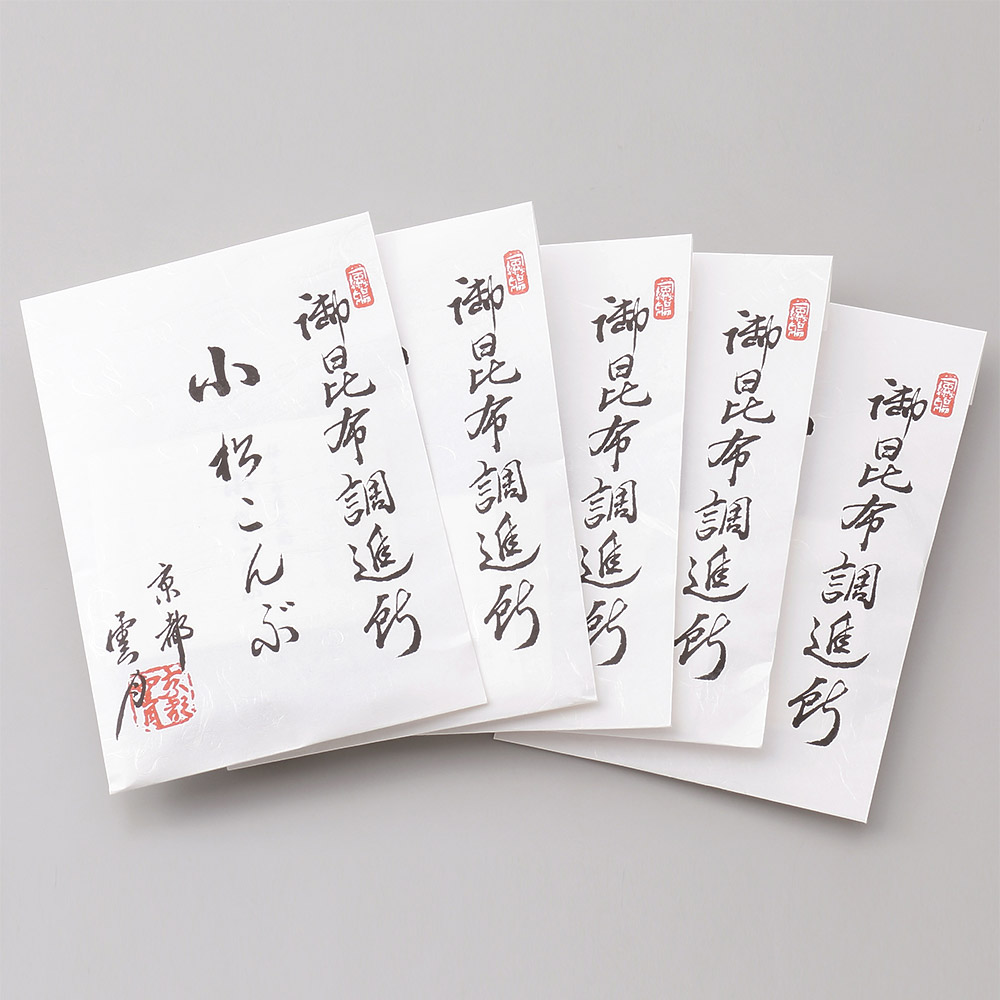 御昆布調進所
小松こんぶ
京都
雲月
御昆布調進所
御昆布調進所
御昆布調進所
御昆布調進所